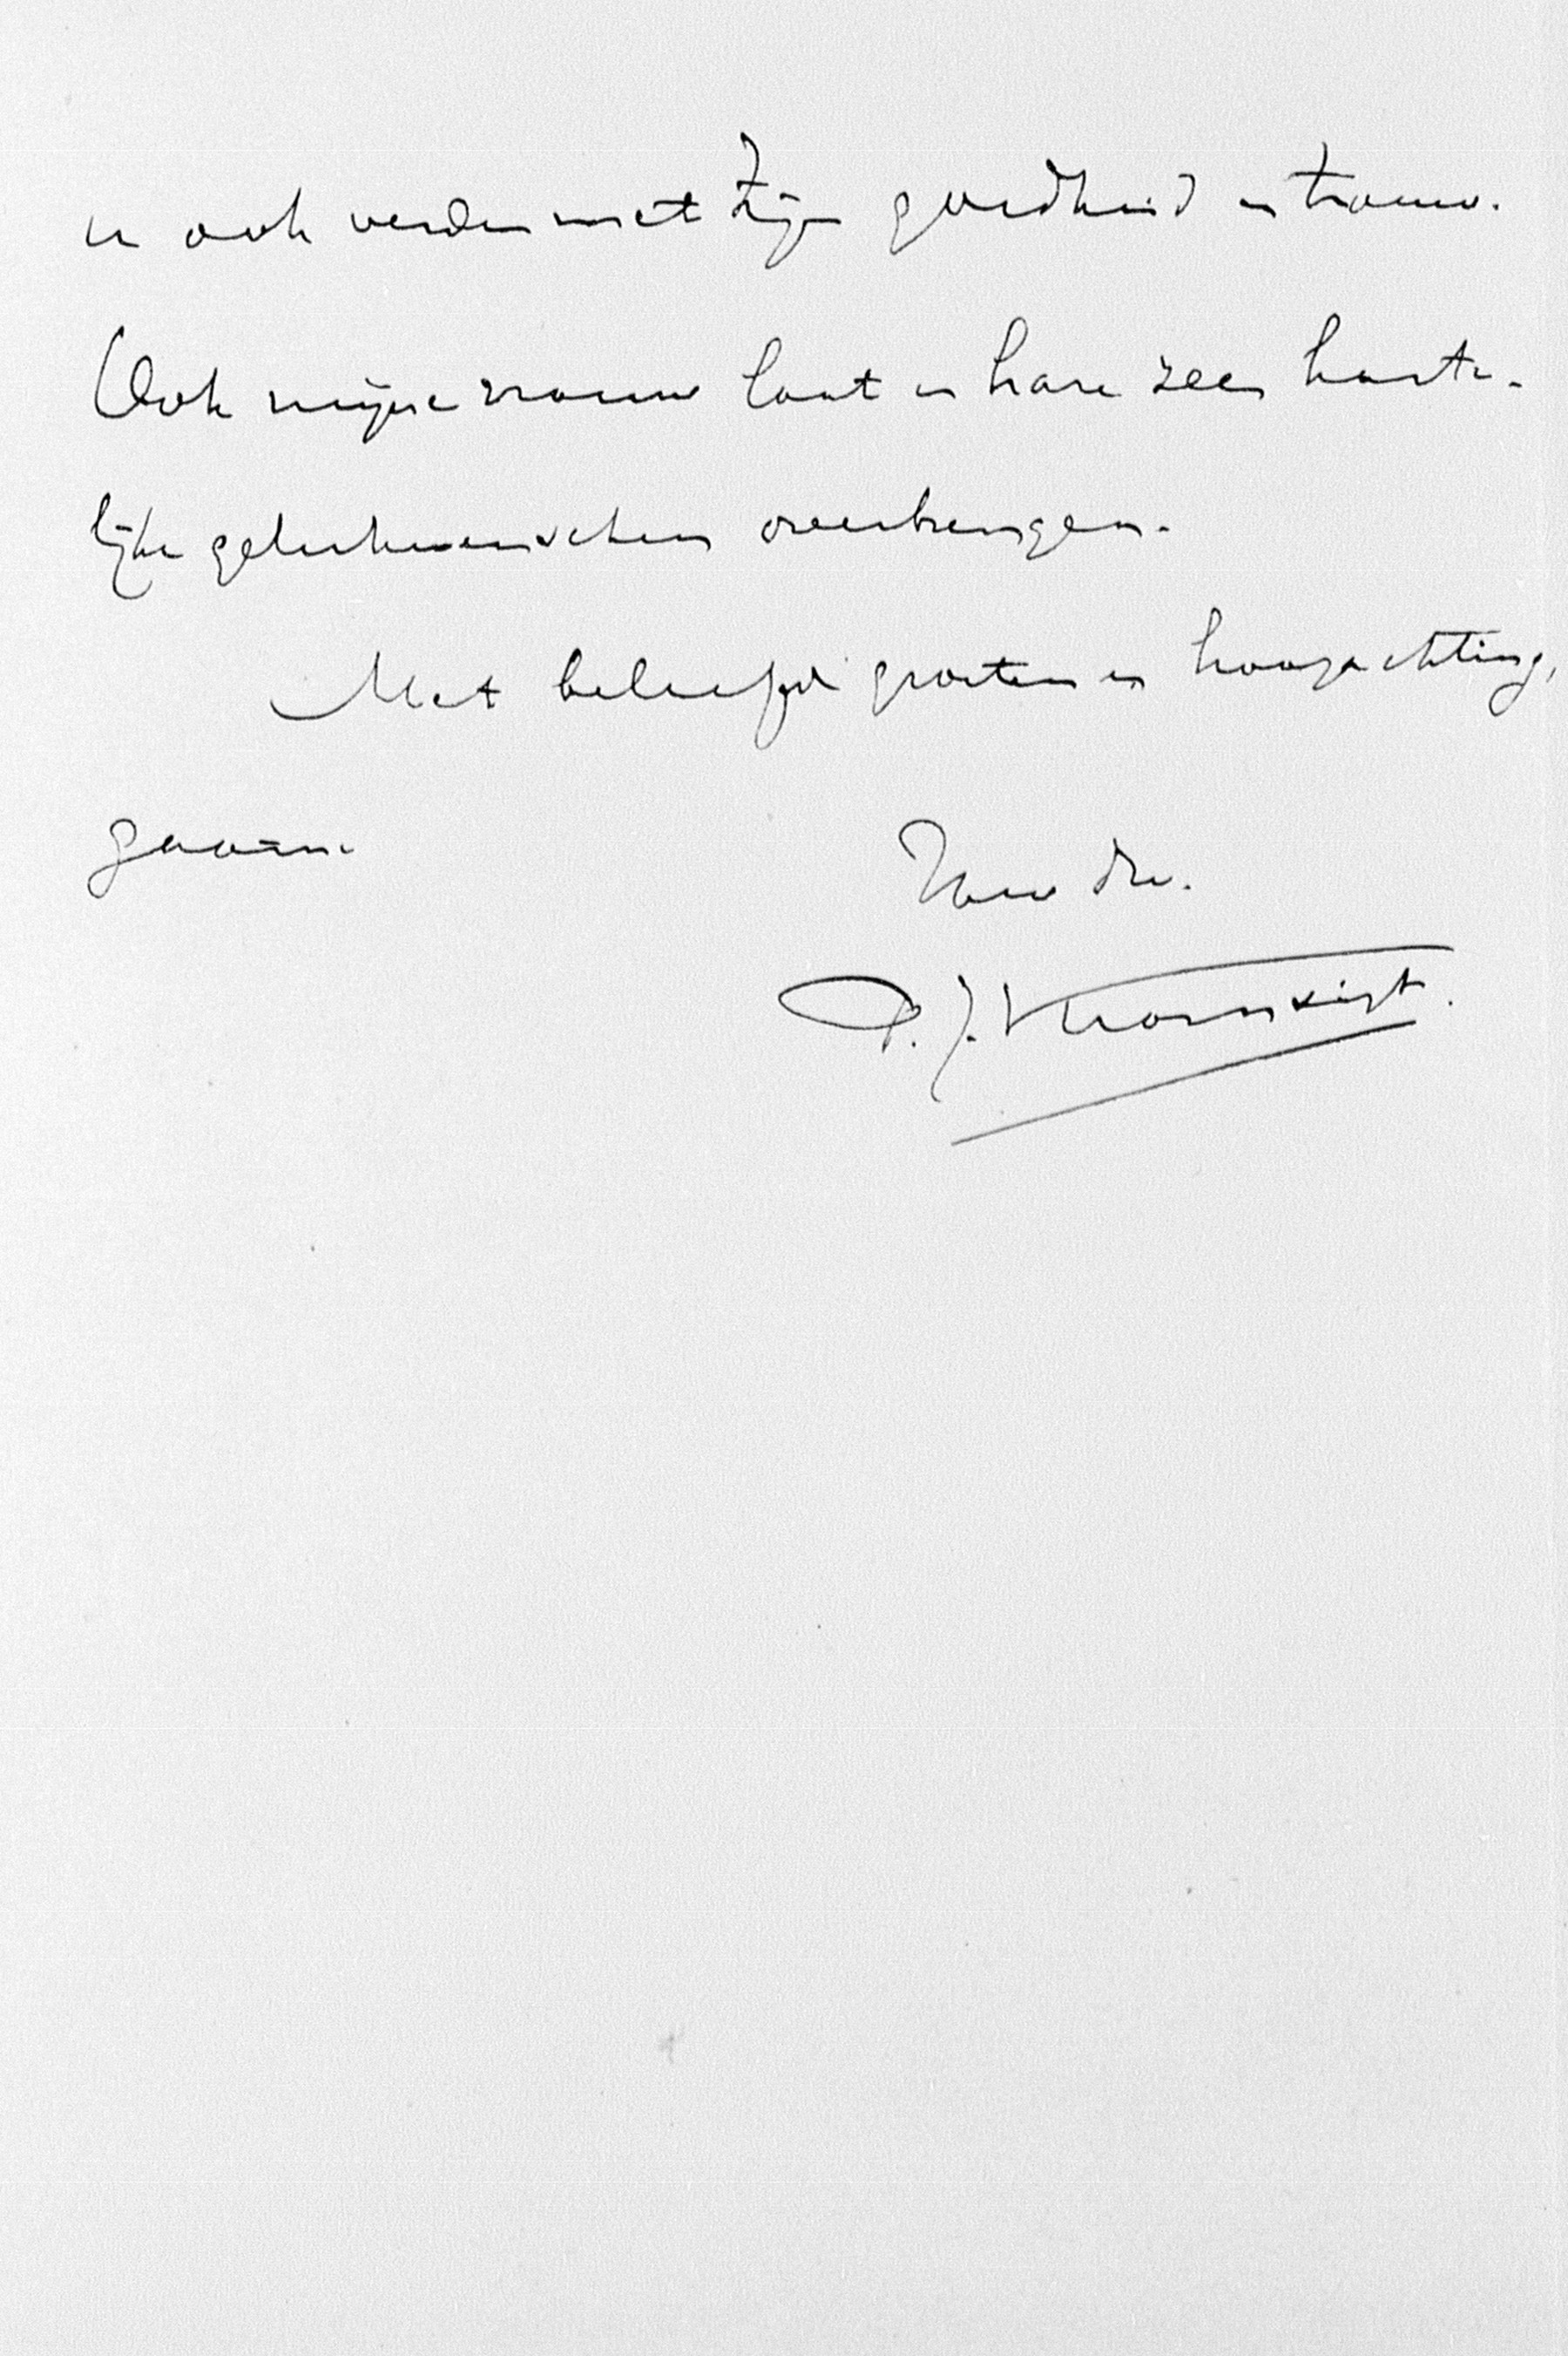 u ook verder met Zijn goedheid en trouw.
Ook mijne vrouw laat u hare zeer harte-
lijke gelukwenschen overbrengen.
Met beleefde groeten en hoogachting,
gaarne
Uw dw.
P. J. Kromsigt.